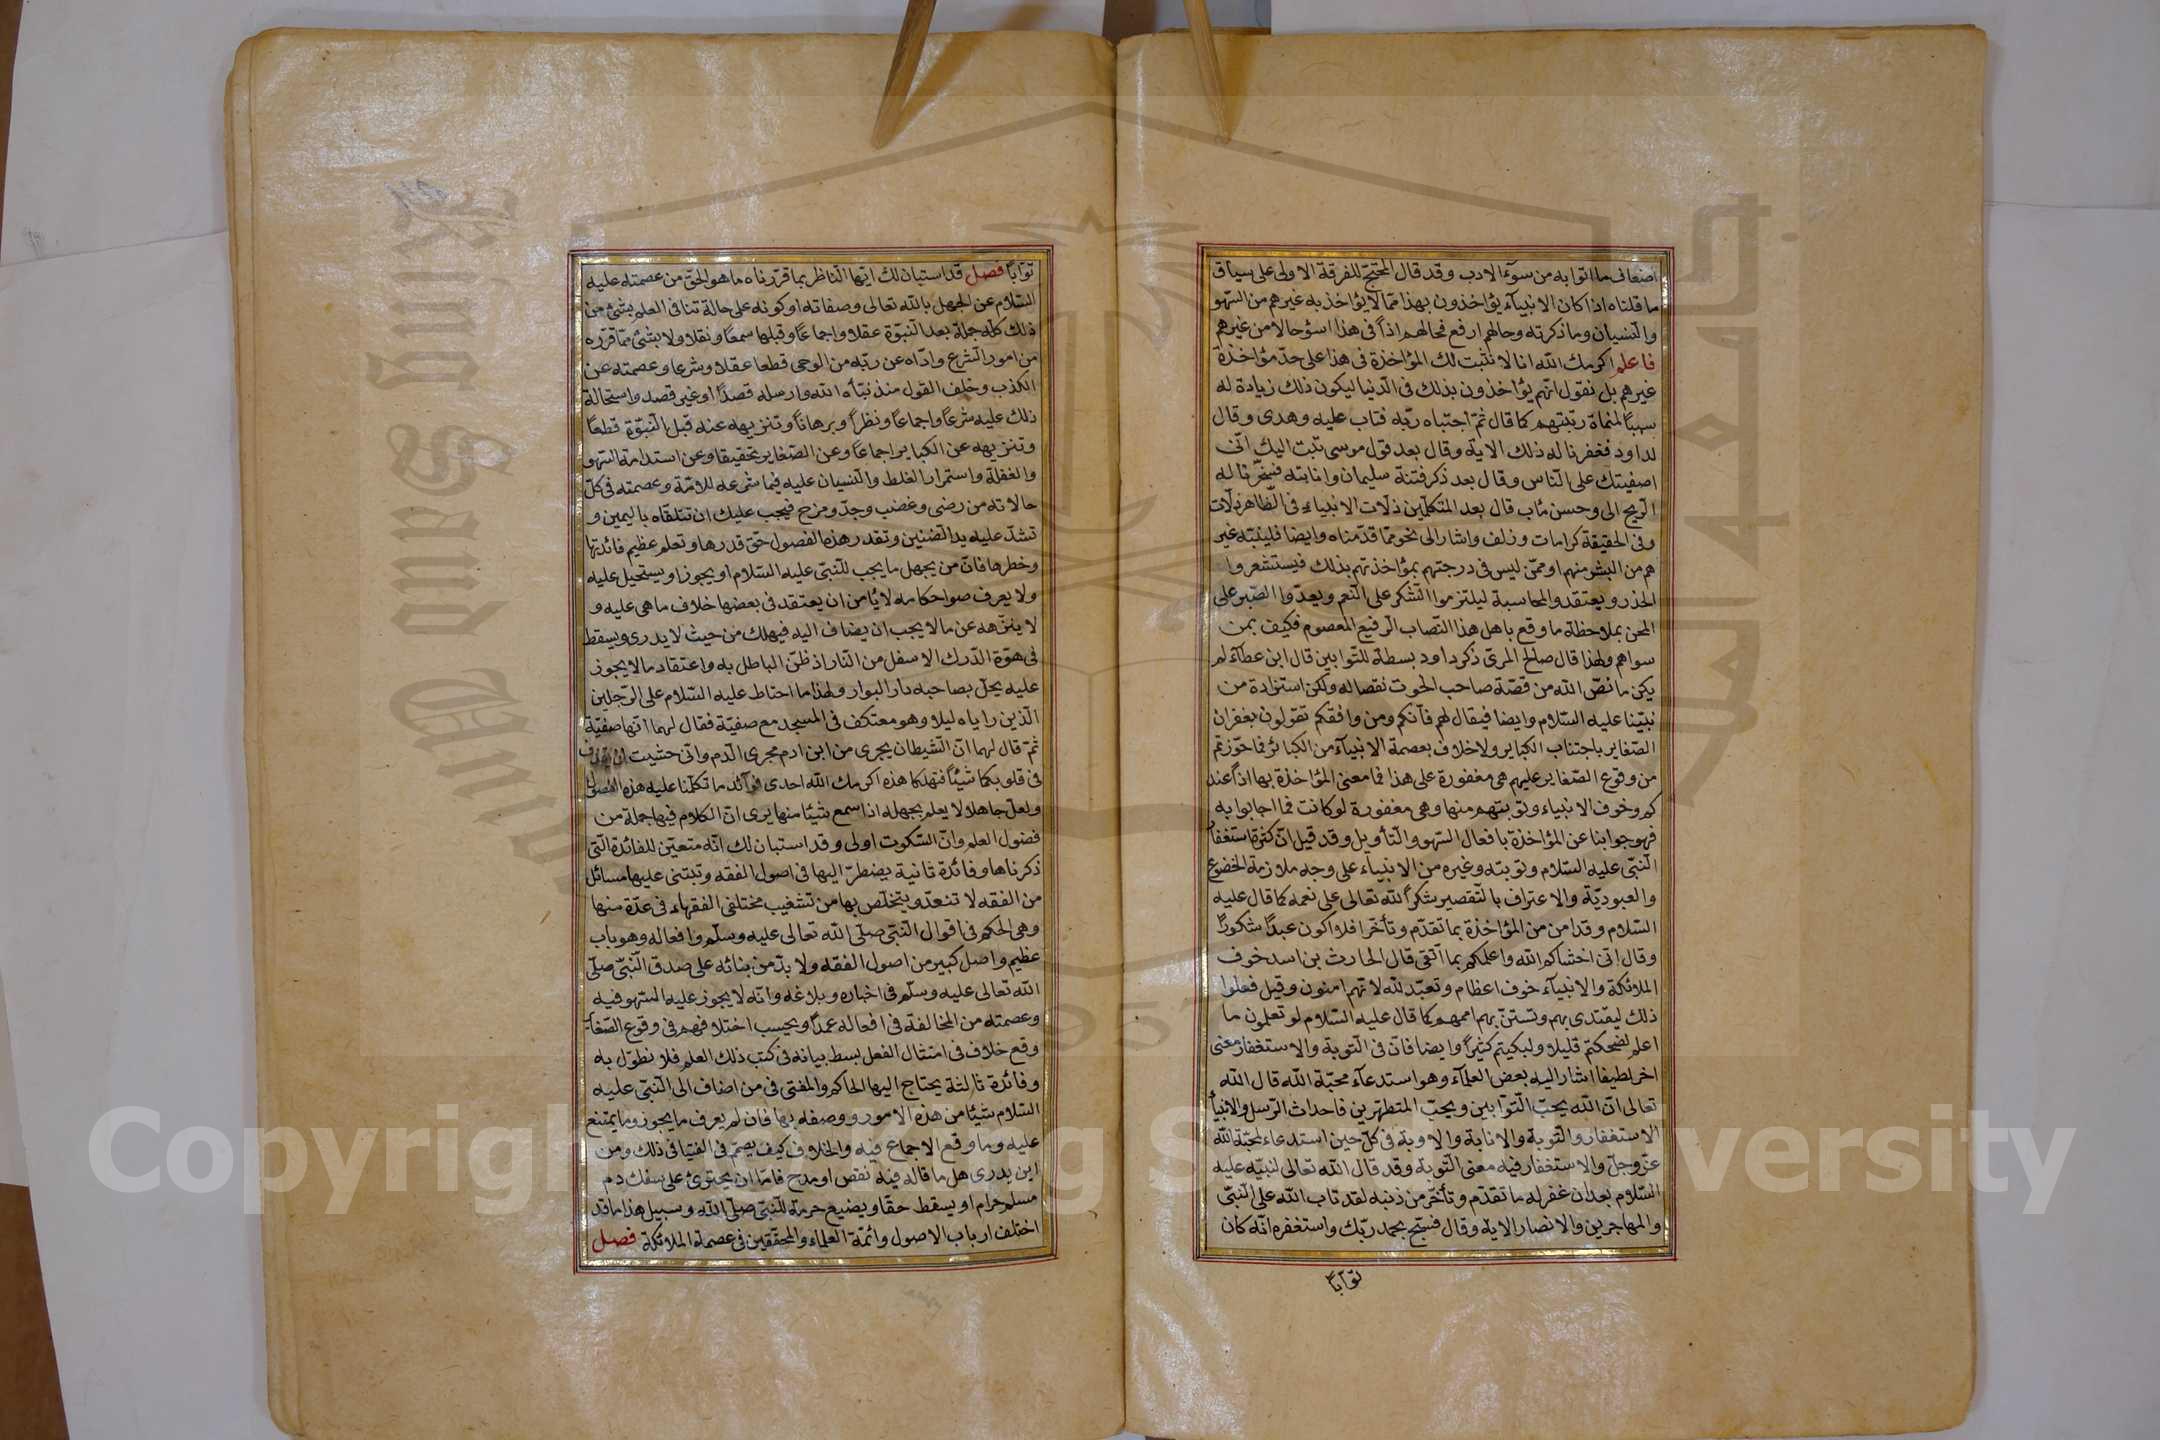 اضعاف ما اتوا به من سوء الادب وقد قال المحتج للفرقة الاولى على سياق
ما قلناه اذا كان الانبياء يؤاخذون بهذا مما لا يؤاخذ به غيرهم من السهو
والنسيان وما ذكرته وحالهم ارفع فحالهم اذاً فى هذا اسؤ حالا من غيرهم
فاعلم اكرمك الله انا لا نثبت لك المؤاخذة فى هذا على حدّ مؤاخذة
غيرهم بل نقول انهم يؤاخذون بذلك فى الدنيا ليكون ذلك زيادة له
سببًا لمنماة رتبتهم كما قال ثمّ اجتباه ربّه فتاب عليه وهدى وقال
لداود فغفرنا له ذلك الاية وقال بعد قول موسى تبت اليك انّى
اصفيتك على الناس وقال بعد ذكر فتنة سليمان وانابته فسخّرنا له
الريح الى وحسن مئاب قال بعد المتكلمين ذلات الانبياء فى الظاهر زلّات
وفى الحقيقة كرامات وزلف واشار الى نحو مما قدّمناه وايضا فلينبّه غير
هم من البشر منهم او ممّن ليس فى درجتهم بمؤاخذتهم بذلك فيستشعروا
الحذر ويعتقد والمحاسبة ليلتزموا الشكر على النعم ويعدّوا الصبر على
المحن بملاحظة ما وقع باهل هذا النصاب الرفيع المعصوم فكيف بمن
سواهم ولهذا قال صالح المرى ذكر داود بسطة للتوابين قال ابن عطاء لم
يكن ما نصّ الله من قصّة صاحب الحوت نقصا له ولكن استزادة من
نبيّنا عليه السلام وايضا فيقال لهم فانكم ومن وافقكم تقولون بغفران
الصغاير باجتناب الكباير ولا خلاف بعصمة الانبياء من الكبائر فما جوّزتم
من وقوع الصغاير عليهم هى مغفورة على هذا فما معنى المؤاخذة بها اذاً عند
كم وخوف الانبياء وتوبتهم منها وهى مغفورة لو كانت فما اجابوا به
فهو جوابنا عن المؤاخذة بافعال السهو والتأويل وقد قيل انّ كثرة استغفار
النبىّ عليه السلام وتوبته وغيره من الانبياء على وجه ملازمة الخضوع
والعبوديّة والاعتراف بالتقصير شكراً لله تعالى على نعمه كما قال عليه
السلام وقد امن من المؤاخذة بما تقدّم وتأخّر افلا اكون عبداً شكورًا
وقال انى اخشاكم الله واعلمكم بما اتّقى قال الحارث بن اسد خوف
الملائكة والانبياء خوف اعظام وتعبّد لله لانهم امنون وقيل فعلوا
ذلك ليقتدى بهم وتستنّ بهم اممهم كما قال عليه السلام لو تعلمون ما
اعلم لضحكتم قليلا ولبكيتم كثيراً وايضا فانّ فى التوبة والاستغفار معنى
اخر لطيفا اشار اليه بعض العلماء وهو استدعاء محبّة الله قال الله
تعالى انّ الله يحبّ التوّابين ويحبّ المتطهّرين فاحداث الرسل والانبياء
الاستغفار والتوبة والانابة والاوبة فى كلّ حين استدعاء لمحبّة الله
عزّ وجلّ والاستغفار فيه معنى التوبة وقد قال الله تعالى لنبيّه عليه
السلام بعد ان غفر له ما تقدّم وتأخّر من ذنبه لقد تاب الله على النبىّ
والمهاجرين والانصار الاية وقال فسبّح بحمد ربّك واستغفره انّه كان
توّاباً
توّاباً فصل قد استبان لك ايّها الناظر بما قرّرناه ما هو الحقّ من عصمته عليه
السلام عن الجهل بالله تعالى وصفاته او كونه على حالة تنافى العلم بشئ من
ذلك كلّه جملة بعد النبوّة عقلا واجماعًا وقبلها سمعًا ونقلا ولا بشئ ممّا قرّره
من امور الشرع وادّاه عن ربّه من الوحى قطعا عقلا وشرعا وعصمته عن
الكذب وخلف القول منذ نبّأه الله وارسله قصداً او غير قصد واستحالة
ذلك عليه شرعًا واجماعًا ونظراً وبرهاناً وتنزيهه عنه قبل النبوّة قطعاً
وتنزيهه عن الكباير اجماعًا وعن الصغاير تحقيقا وعن استدامة السهو
والغفلة واستمرار الغلط والنسيان عليه فيما شرعه للامّة وعصمته فى كلّ
حالاته من رضى وغضب وجدّ ومزح فيجب عليك ان تتلقّاه باليمين و
تشدّ عليه يد الضنين وتقدر هذه الفصول حقّ قدرها وتعلم عظيم فائدتها
وخطرها فانّ من يجهل ما يجب للنبىّ عليه السلام او يجوز او يستحيل عليه
ولا يعرف صواحكامه لا يأمن ان يعتقد فى بعضها خلاف ما هى عليه و
لا ينزّهه عن ما لا يجب ان يضاف اليه فيهلك من حيث لا يدرى ويسقط
فى هوّة الدرك الاسفل من النار اذ ظنّ الباطل به واعتقاد ما لا يجوز
عليه يحلّ بصاحبه دار البوار ولهذا ما احتاط عليه السلام على الرجلين
الّذين راياه ليلا وهو معتكف فى المسجد مع صفيّة فقال لهما انّها صفيّة
ثمّ قال لهما انّ الشيطان يجرى من ابن ادم مجرى الدم وانّى خشيت ان يقذف
فى قلوبكما شيئاً فتهلكا هذه اكرمك الله احدى فوائد ما تكلّمنا عليه هذه الفصول
ولعلّ جاهلا لا يعلم بجهله اذا سمع شيئا منها يرى انّ الكلام فيها جملة من
فضول العلم وانّ السكوت اولى وقد استبان لك انّه متعيّن للفائدة الّتى
ذكرناها وفائدة ثانية يضطرّ اليها فى اصول الفقه وتبتنى عليها مسائل
من الفقه لا تنعدّ ويتخلّص بها من تشغيب مختلفى الفقهاء فى عدّة منها
وهى الحكم فى اقوال النبىّ صلّى الله تعالى عليه وسلّم وافعاله وهو باب
عظيم واصل كبير من اصول الفقه ولا بدّ من بنائه على صدق النبىّ صلّى
الله تعالى عليه وسلّم فى اخباره وبلاغه وانّه لا يجوز عليه السهو فيه
وعصمته من المخالفة فى افعاله عمداً وبحسب اختلافهم فى وقوع الصغاير
وقع خلاف فى امتثال الفعل بسط بيانه فى كتب ذلك العلم فلا نطوّل به
وفائدة ثالثة يحتاج اليها الحاكم والمفتى فى من اضاف الى النبىّ عليه
السلام شيئا من هذه الامور ووصفه بها فان لم يعرف ما يجوز وما يمتنع
عليه وما وقع الاجماع فيه والخلاف كيف يصمّم فى الفتيا فى ذلك ومن
اين يدرى هل ما قاله فيه نقص او مدح فامّا ان يجترئ على سفك دم
مسلم حرام او يسقط حقّا ويضيع حرمة للنبىّ صلّى الله وسبيل هذا ما قد
اختلف ارباب الاصول وائمّة العلماء والمحقّقين فى عصمة الملائكة فصل
Copyright © King Saud University
King Saud University
جامعة الملك سعود
1957